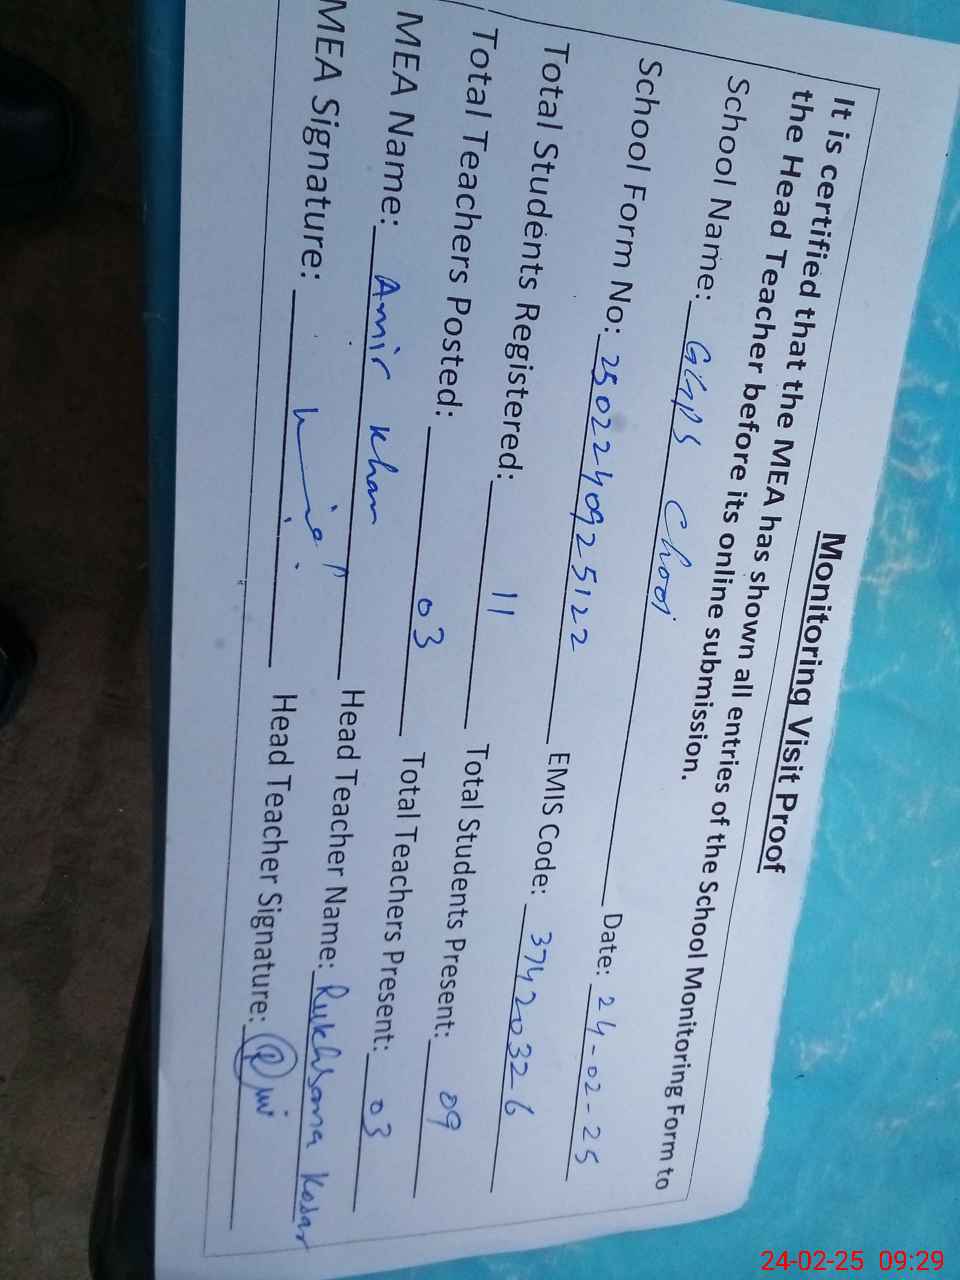 Monitoring Visit Proof
It is certified that the MEA has shown all entries of the School Monitoring Form to
the Head Teacher before its online submission.
School Name: GGPS Chooi Date: 24-02-25
School Form No: 2502240925122 EMIS Code: 37420326
Total Students Registered: 11 Total Students Present: 09
Total Teachers Posted: 03 Total Teachers Present: 03
MEA Name: Amir Khan Head Teacher Name: Rukhsana Kosar
MEA Signature: Head Teacher Signature:
24-02-25 09:29